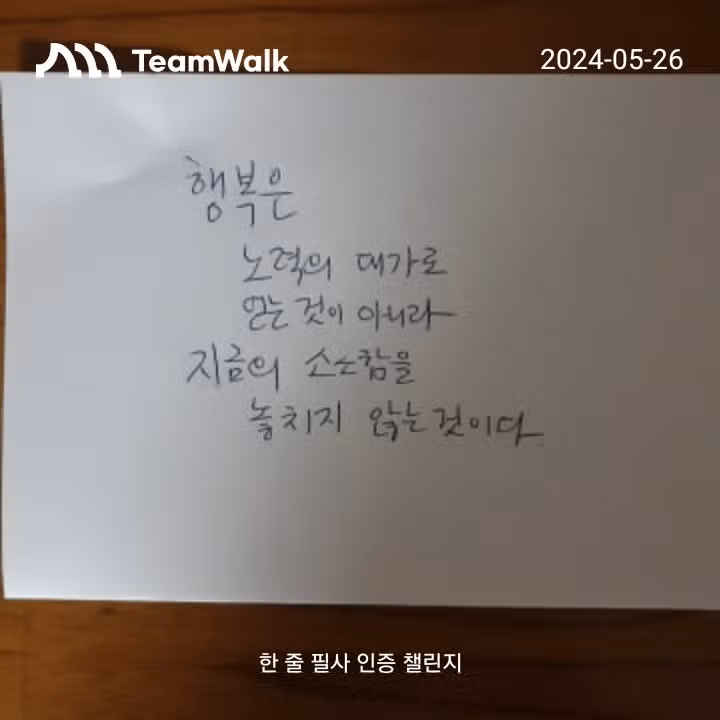 TeamWalk
2024-05-26
행복은
노력의 대가로
얻는 것이 아니라
지금의 소소함을
놓치지 않는 것이다
한 줄 필사 인증 챌린지